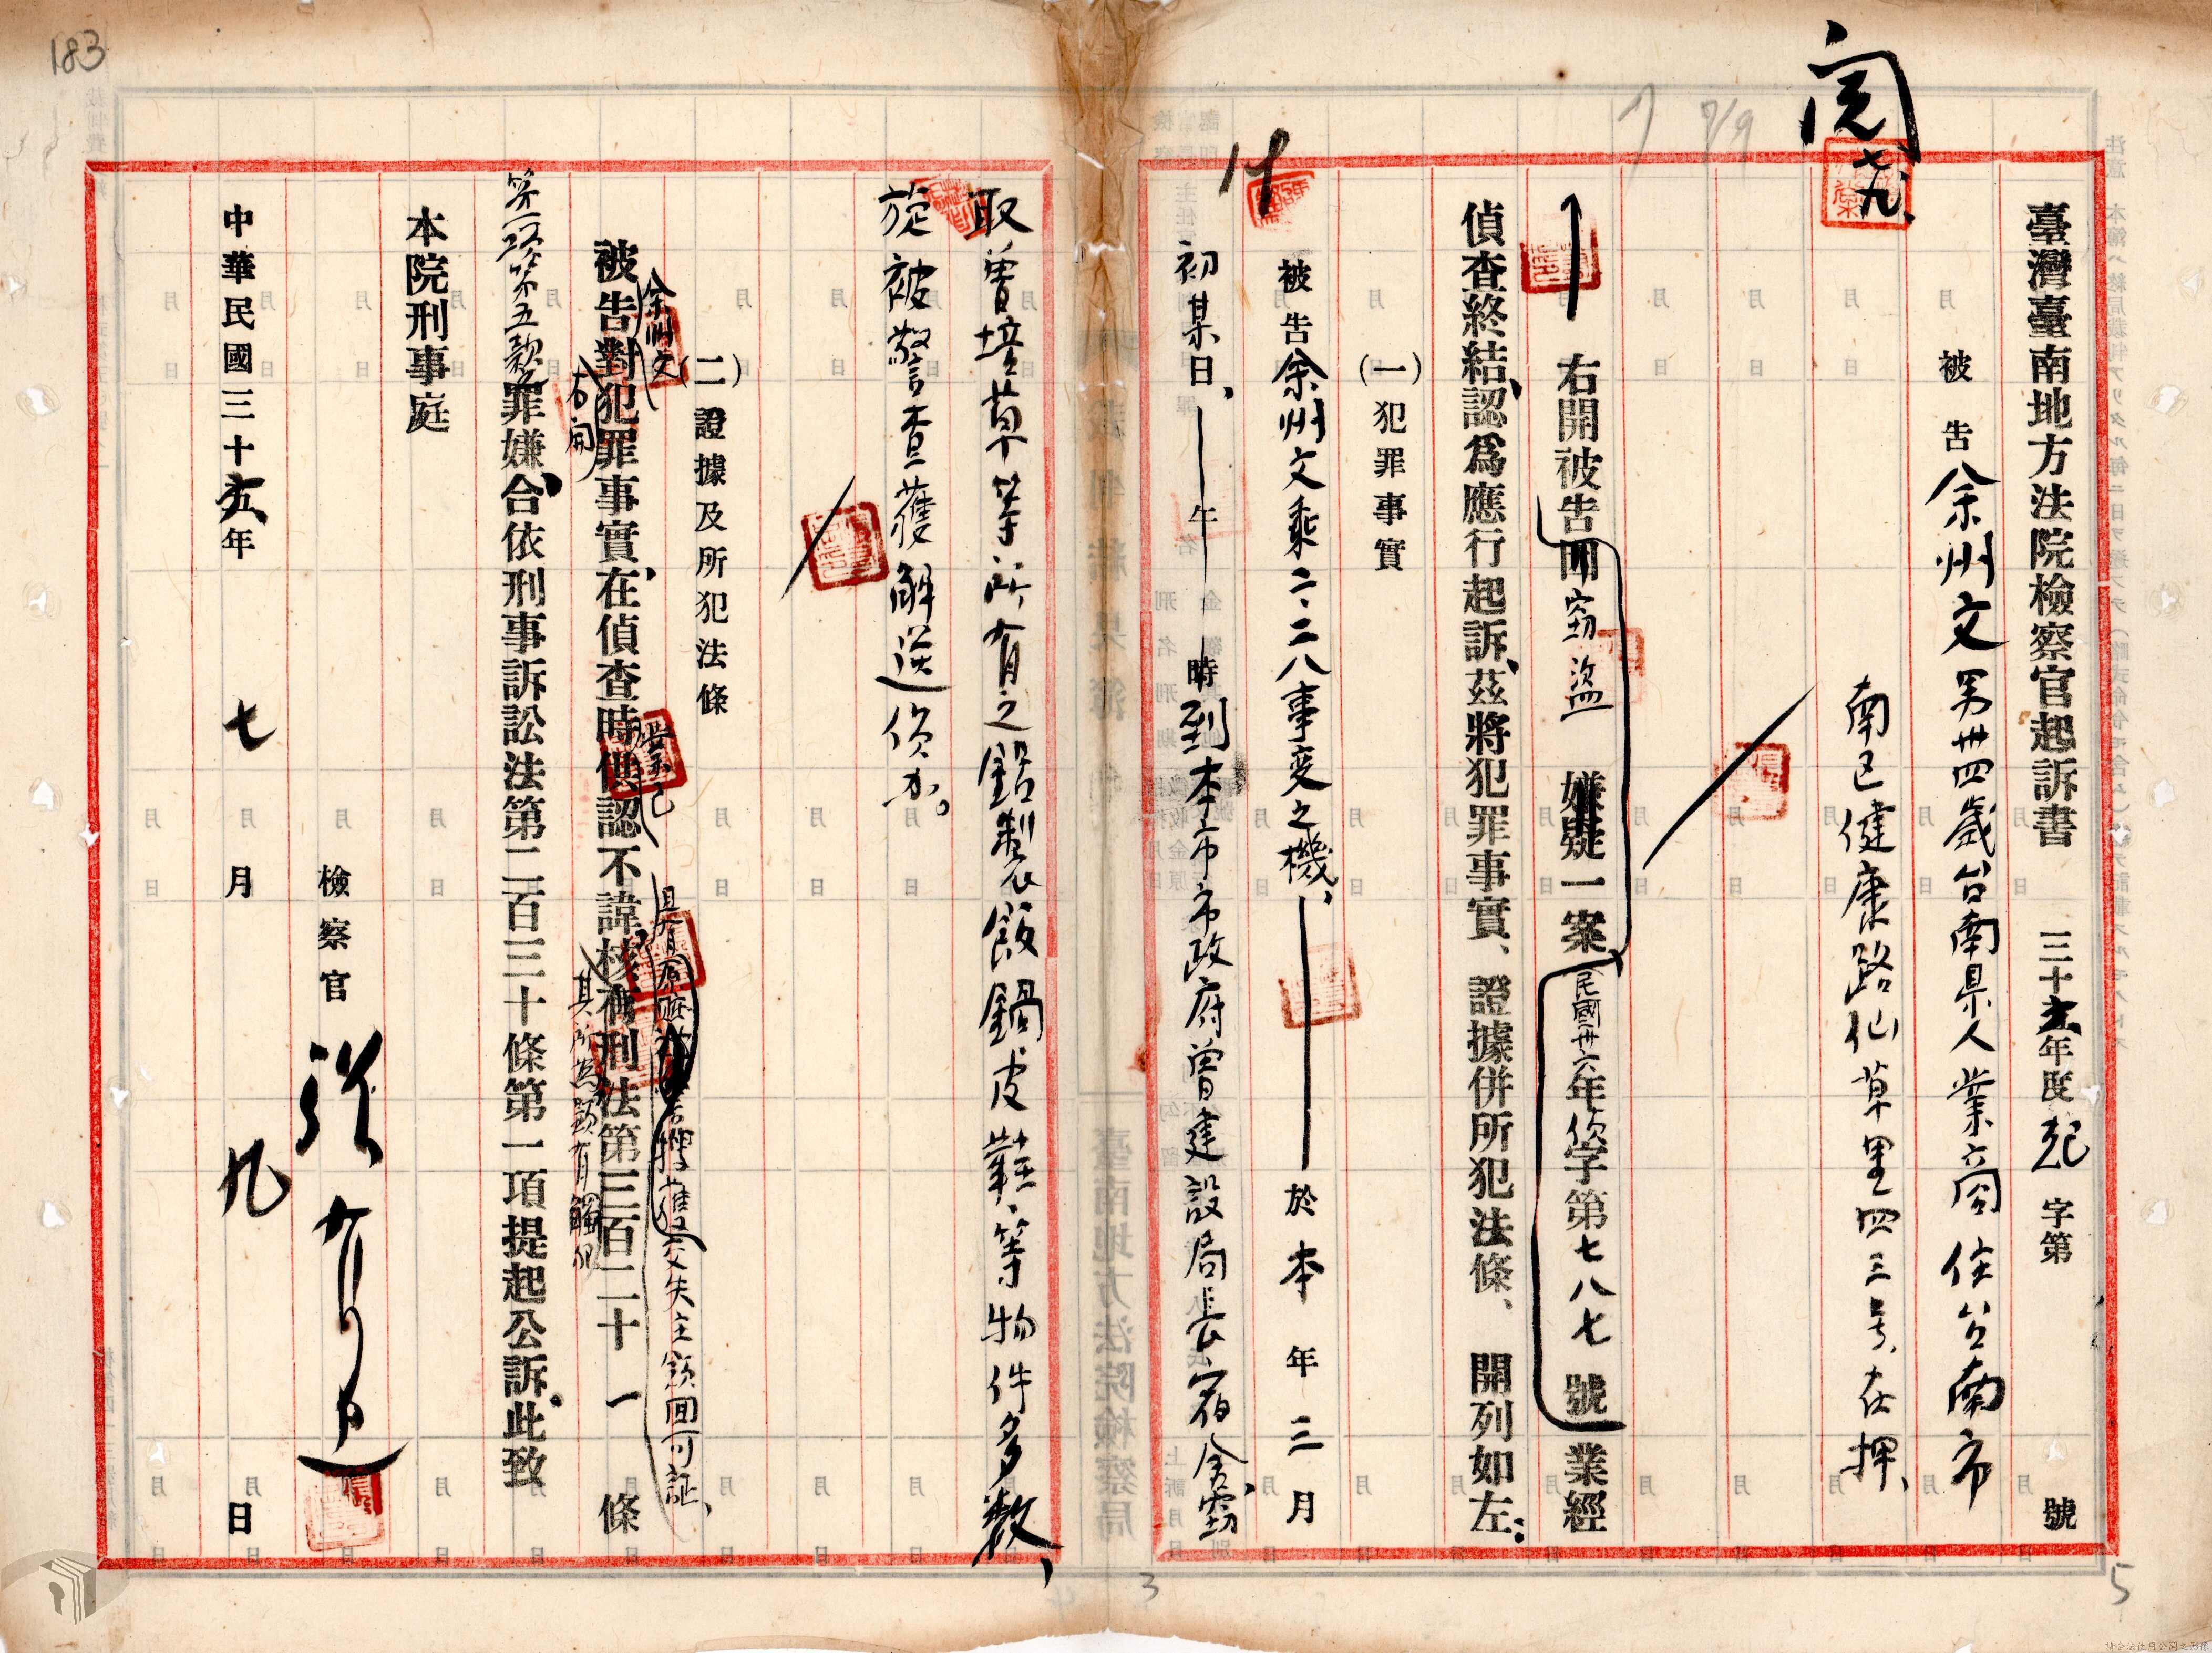 183
閱
七、九、
7/9
臺灣臺南地方法院檢察官起訴書 三十六年度起字第 號
被告余州文男卅四歲台南県人業商住台南市
南区健康路仙草里四三号、在押、
右開被告因竊盜嫌疑一案民國卅六年偵字第七八七號業經
偵查終結、認為應行起訴、茲將犯罪事實、證據併所犯法條、開列如左：
(一)犯罪事實
被告余州文乘二、二八事変之機、於本年三月
初某日、午時到本市市政府曾建設局長宿舍、竊
取曾培草等所有之鋁製飯鍋皮鞋、等物件多数、
旋被警查獲解送偵办。
(二)證據及所犯法條
余州文
業已
交失主領回可証、
被告對犯罪事實、在偵查時供認不諱、核有刑法第三百二十一條
右開
其所為顯有觸犯
第一項第五款罪嫌、合依刑事訴訟法第二百三十條第一項提起公訴。此致
本院刑事庭
檢察官
中華民國三十六年七月九日
3
5
請合法使用公開之影像